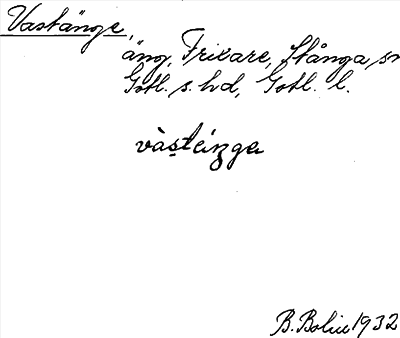 Vastänge,
äng, Frikare, Stånga sn
Gotl. s. hd, Gotl. l.
vàsteinge
B. Bolin 1932